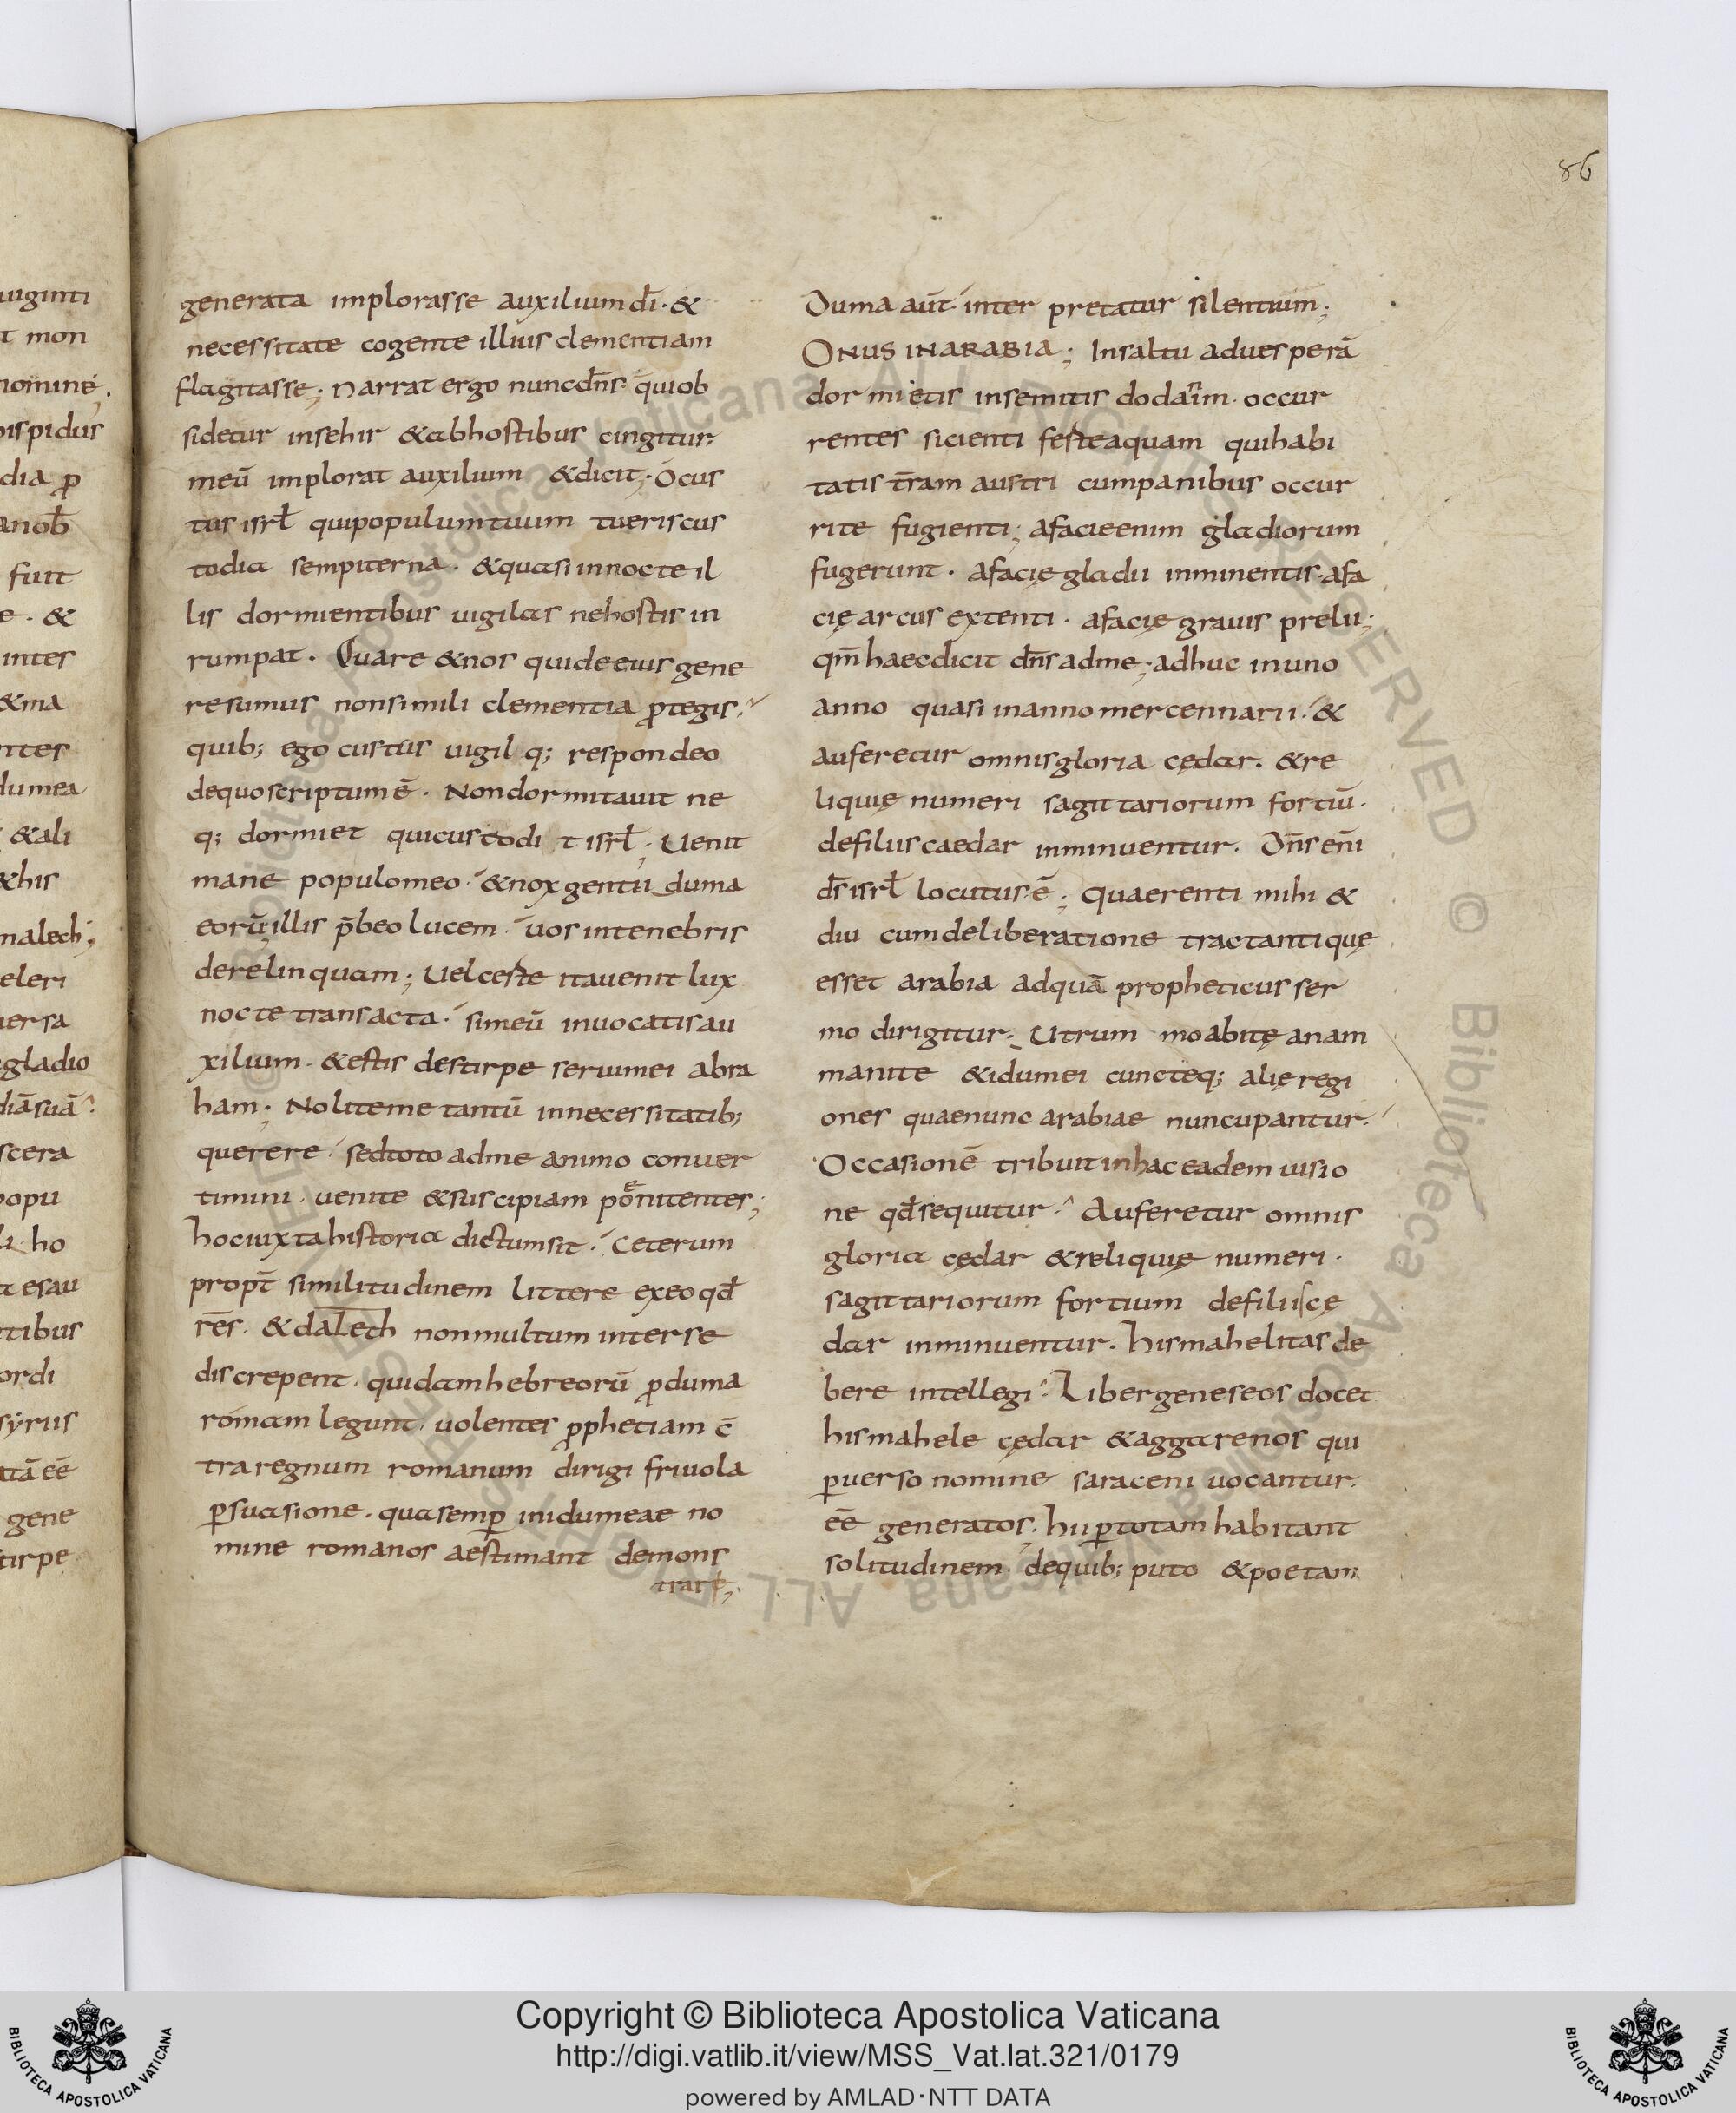 86
generata implorasse auxilium dī. &
necessitate cogente illius clementiam
flagitasse; Narrat ergo nunc dn̄s. qui ob
sidetur insehir &abhostibus cingitur
meū implorat auxilium &dicit; Ocus
tus isrł quipopulumtuum tueriscus
todia sempiterna. &quasi innocte il
lis dormientibus uigilas nehostis in
rumpat. Quare &nos quideeius gene
resumus nonsimili clementia ꝓtegis.
quib; ego custus uigil q; respondeo
dequoscriptumē. Nondormitauit ne
q; dormiet quicustodit isrł; Uenit
mane populomeo. &nox gentiū duma
eorū illis p̄beo lucem. uos intenebris
derelinquam; Uelceste itauenit lux
nocte transacta. simeū inuocatis au
xilium. &estis destirpe seruimei abra
ham; Noliteme tantū innecessitatib;
querere. sedtoto adme animo conuer
timini. uenite &suscipiam poenitentes;
hociuxtahistoria dictumsit. Ceterum
propt̄ similitudinem littere exeo qđ
rēs. &dalech nonmultum interse
discrepent. quidamhebreorū ꝓduma
romam legunt. uolentes ꝓphetiam c̄
traregnum romanum dirigi friuola
ꝑsuasione. quasemꝑ inidumeae no
mine romanos aestimant demons
trare;
Duma aūt. inter pretatur silentium;
ONUS INARABIA; Insaltu aduesperā
dormietis insemitis dodaim. occur
rentes sicienti festeaquam quihabi
tatis t̄ram austri cumpanibus occur
rite fugienti; afacieenim gladiorum
fugerunt. afacię gladii inminentis. afa
cię arcus extenti. afacię grauis prelii;
qm̄ haecdicit dn̄s adme; adhuc inuno
anno quasi inannomercennarii. &
auferetur omnisgloria cędar. &re
liquię numeri sagittariorum fortiū.
defiliis caedar inminuentur. Dn̄s enī
ds̄ isrł locutus ē; Quaerenti mihi &
diu cumdeliberatione tractantique
esset arabia adquā propheticus ser
mo dirigitur. Utrum moabitę anam
manite &idumei cuncteq; alię regi
ones quaenunc arabiae nuncupantur.
Occasionē tribuit inhaceadem uisio
ne qđsequitur. Auferetur omnis
gloria cędar &reliquię numeri.
sagittariorum fortium defiliiscę
dar inminuentur. hismahelitas de
bere intellegi. Liber geneseos docet
hismahele cędar &aggarenos qui
ꝑuerso nomine saraceni uocantur.
ēē generatos. hii ꝑtotam habitant
solitudinem. dequib; puto &poetam
uiginti
t mon
nomine.
hispidus
dia ꝓ
fuit
e. &
inter
&ma
ntes
dumea
&ali
&his
malech;
eleri
uersa
gladio
diā suā
scera
popu
ho
esau
tibus
ordi
syrus
atā ēē
gene
stirpe
© Biblioteca Apostolica Vaticana ALL RIGHTS RESERVED
Copyright © Biblioteca Apostolica Vaticana
http://digi.vatlib.it/view/MSS_Vat.lat.321/0179
powered by AMLAD·NTT DATA
BIBLIOTECA APOSTOLICA VATICANA
BIBLIOTECA APOSTOLICA VATICANA